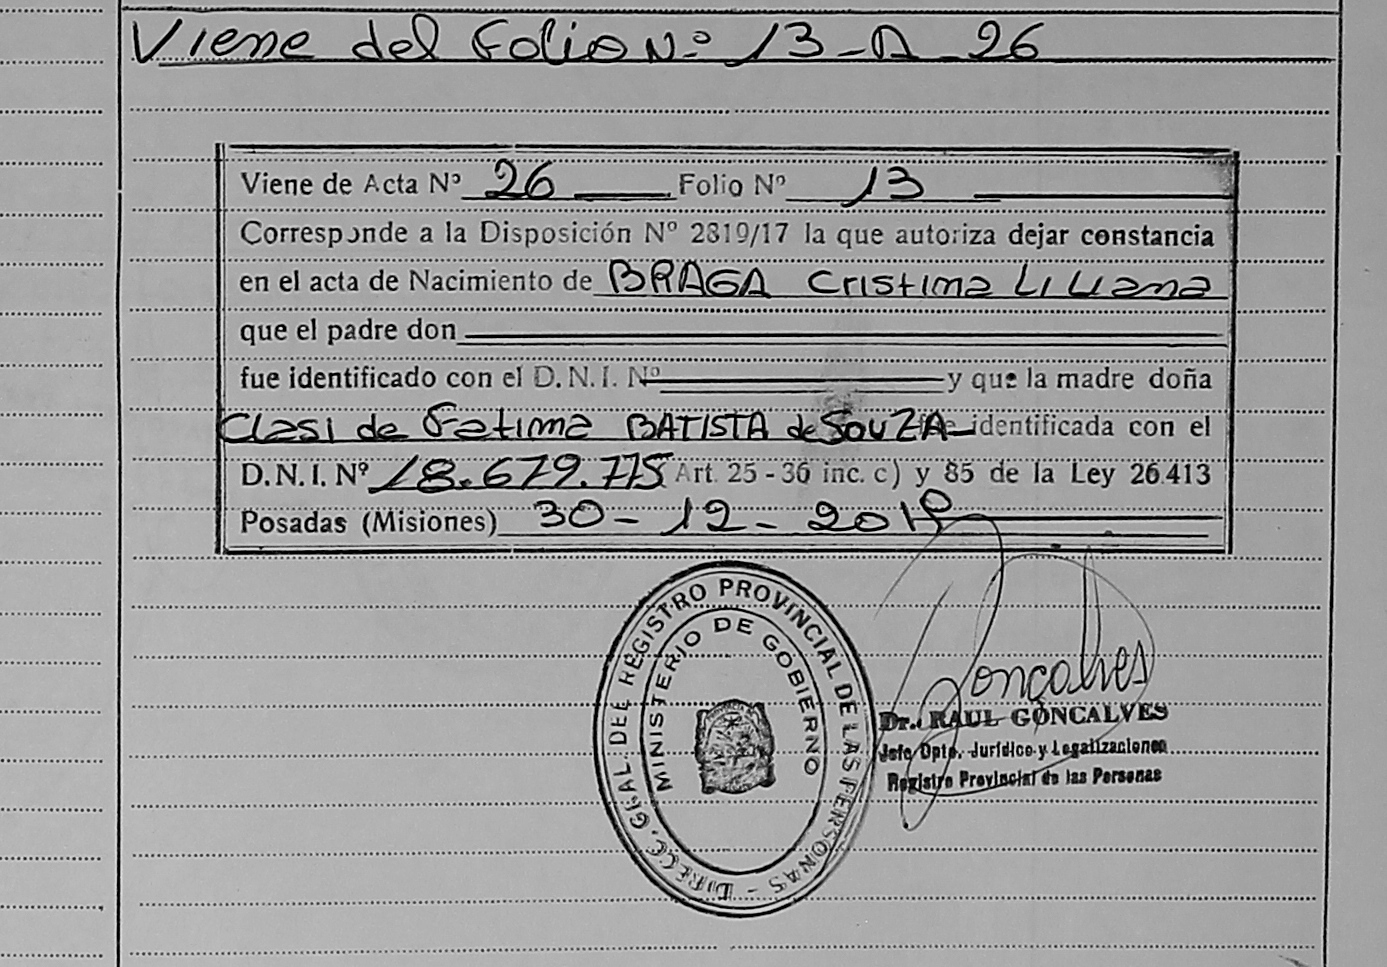 Viene del Folio N.º 13 - A - 26
Viene de Acta Nº 26 Folio Nº 13
Corresponde a la Disposición Nº 2819/17 la que autoriza dejar constancia
en el acta de Nacimiento de BRAGA Cristina Liliana
que el padre don
fue identificado con el D. N. I. Nº y que la madre doña
Clasi de Fatima BATISTA de SOUZA identificada con el
D. N. I. Nº 18.679.775 Art. 25 - 36 inc. c) y 85 de la Ley 26.413
Posadas (Misiones) 30 - 12 - 2019
DIRECC. GRAL. DEL REGISTRO PROVINCIAL DE LAS PERSONAS -
MINISTERIO DE GOBIERNO
Goncalves
Dr. RAUL GONCALVES
Jefe Dpto. Jurídico y Legalizaciones
Registro Provincial de las Personas